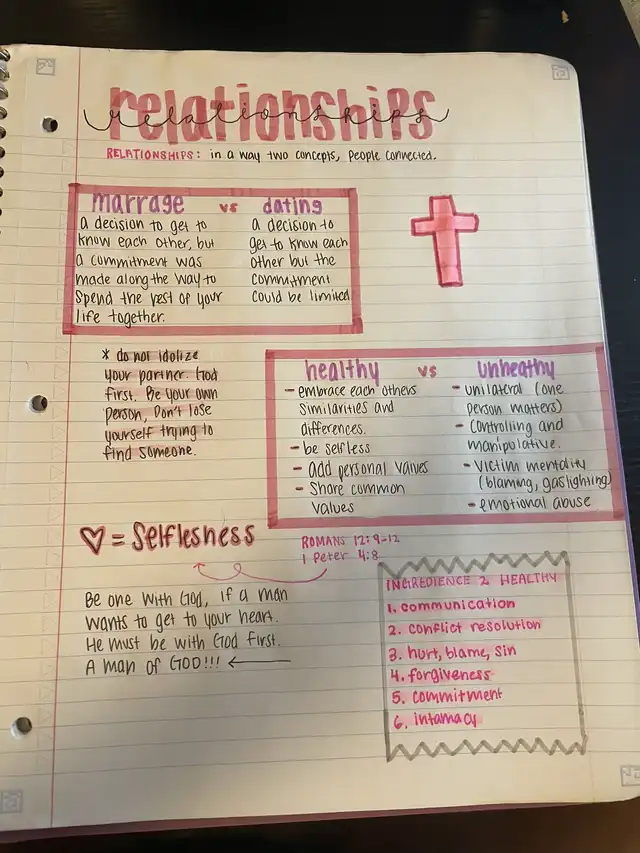 relationships
relationships
RELATIONSHIPS: in a way two concepts, people connected.
marrage vs dating
a decision to get to
know each other, but
a commitment was
made along the way to
spend the rest of your
life together.
a decision to
get to know each
other but the
commitment
could be limited
* do not idolize
your partner. God
first. Be your own
person, Don't lose
yourself trying to
find someone.
healthy vs unheathy
- embrace each others
similarities and
differences.
- be selfless
- add personal values
- Share common
values
- unilateral (one
person matters)
- Controlling and
manipulative.
- Victim mentality
(blaming, gaslighting)
- emotional abuse
♡ = Selflesness
ROMANS 12:9-12
1 Peter 4:8
Be one with God, if a man
wants to get to your heart.
He must be with God first.
A man of GOD!!! ←
INGREDIENCE 2 HEALTHY
1. communication
2. conflict resolution
3. hurt, blame, sin
4. forgiveness
5. commitment
6. intamacy